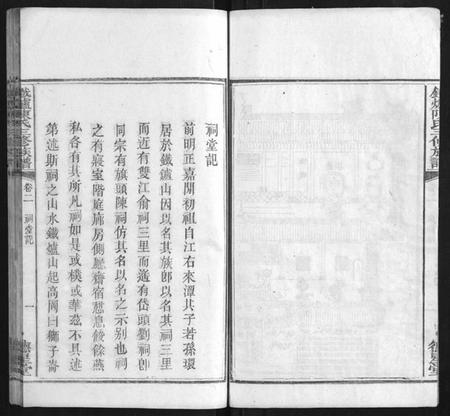 鐵爐陳氏三修族譜
祠堂記
前明正嘉閒初祖自江右來潭其子若孫環
居於鐵鑪山因以名其族郎以名其祠三里
而近有雙江俞祠三里而遙有岱頭劉祠卽
同宗有旗頭陳祠仿其名以名之示別也祠
之有寢室階庭廊房側廳齋宿憩息餕餘燕
私各有其所凡祠如是或樸或華茲不具述
第述斯祠之山水鐵爐山起高周曰獅子崙
鐵爐陳氏三修族譜
卷二
祠堂記
一